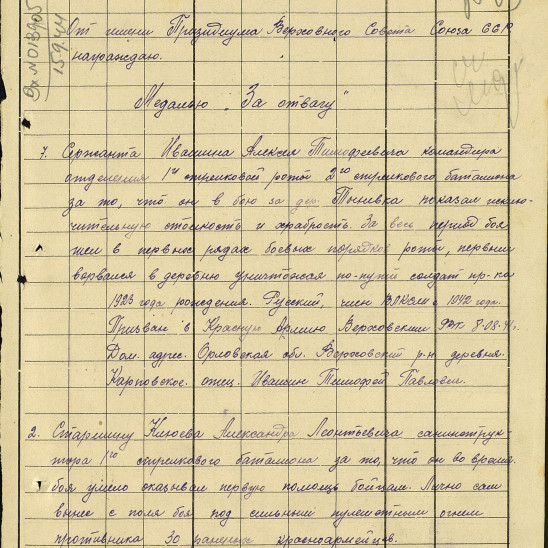 Вх N 013905
15.9.44
От имени Призидиума Верховного Совета Союза ССР
награждаю.
Медалью „За отвагу"
1. Сержанта Ивашина Алексея Тимофеевича командира
отделения 1ой стрелковой роты 2го стрелкового баталиона
за то, что он в бою за дер. Тынивка показал исклю-
чительную стойкость и храбрость. За весь период боя
шел в первых рядах боевых порядков роты, первым
ворвался в деревню уничтожая по-пути солдат пр-ка
1923 года рождения. Русский, член ВЛКСМ с 1942 года.
Призван в Красную Армию Верховским РВК 8.08.41г.
Дом. адрес. Орловская обл. Верховский р-н деревня.
Карповское. отец. Ивашин Тимофей Павлович.
2. Старшину Клюева Александра Леонтьевича санинструк-
тора 1го стрелкового баталиона за то, что он во время.
боя умело оказывал первую помощь бойцам. Лично сам
вынес с поля боя под сильным пулеметным огнем
противника 30 раненых красноармейцев.